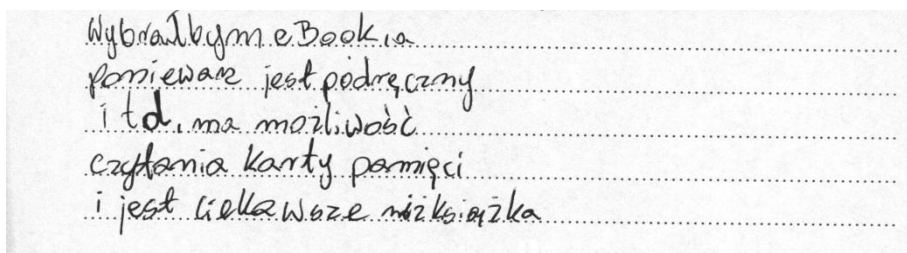 Wybrałbym eBook,a
ponieważe jest podręczny
i td. ma możliwość
czytania karty pamięci
i jest ciekawsze niż książka